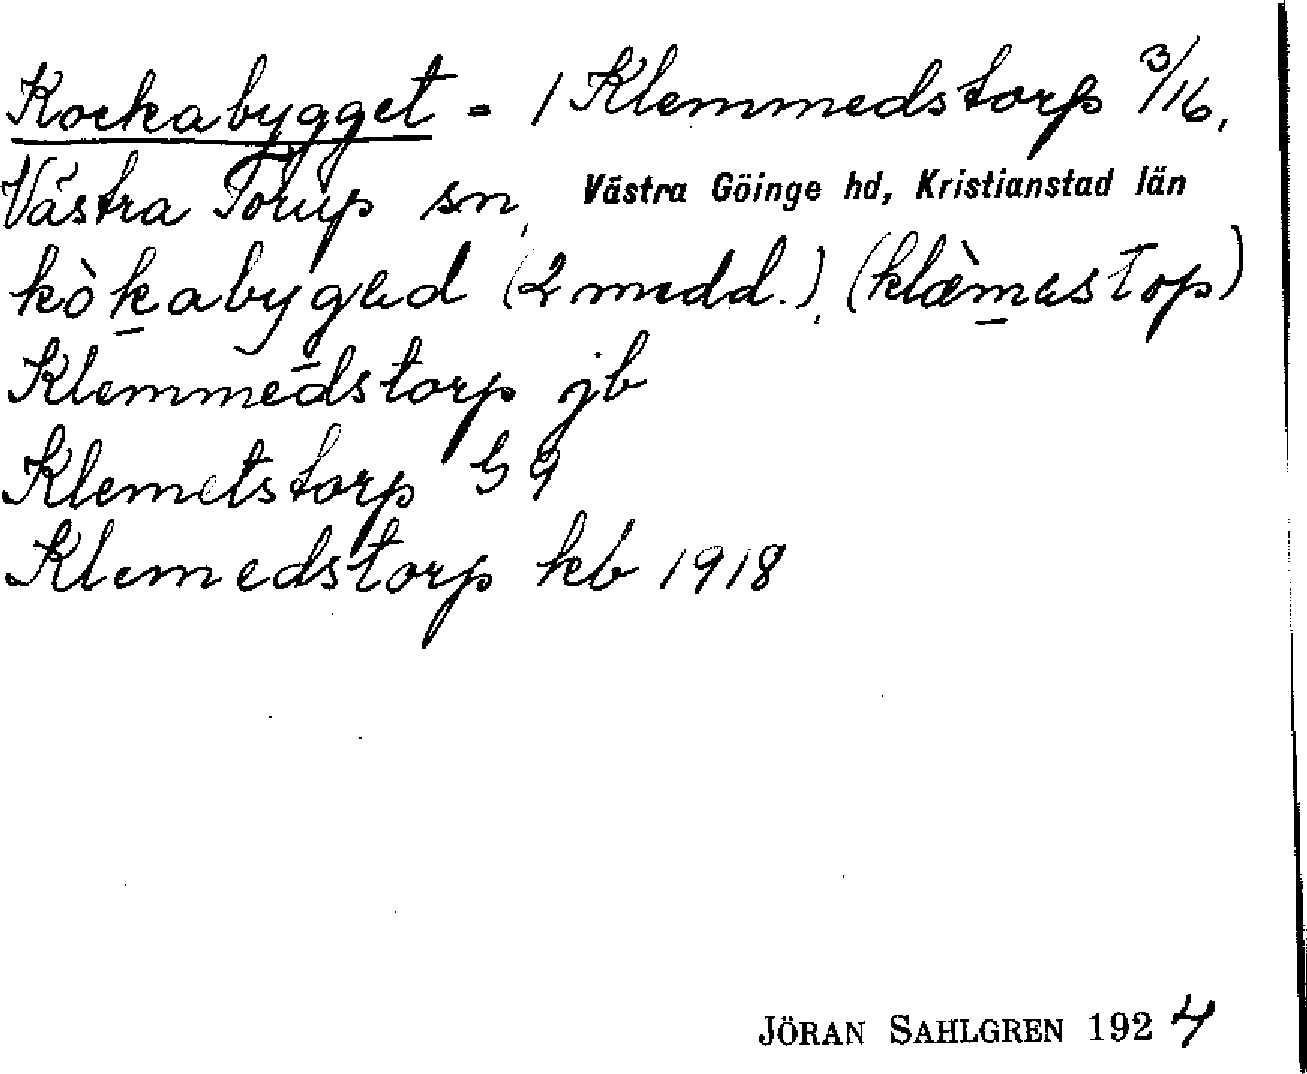 Kockabygget = 1 Klemmedstorp 3/16,
Västra Torup sn, Västra Göinge hd, Kristianstad län
kòkabygəd (2 medd.), (klæ̀məstop)
Klemmedstorp jb
Klemetstorp G 9
Klemedstorp kb 1918
JÖRAN SAHLGREN 1924